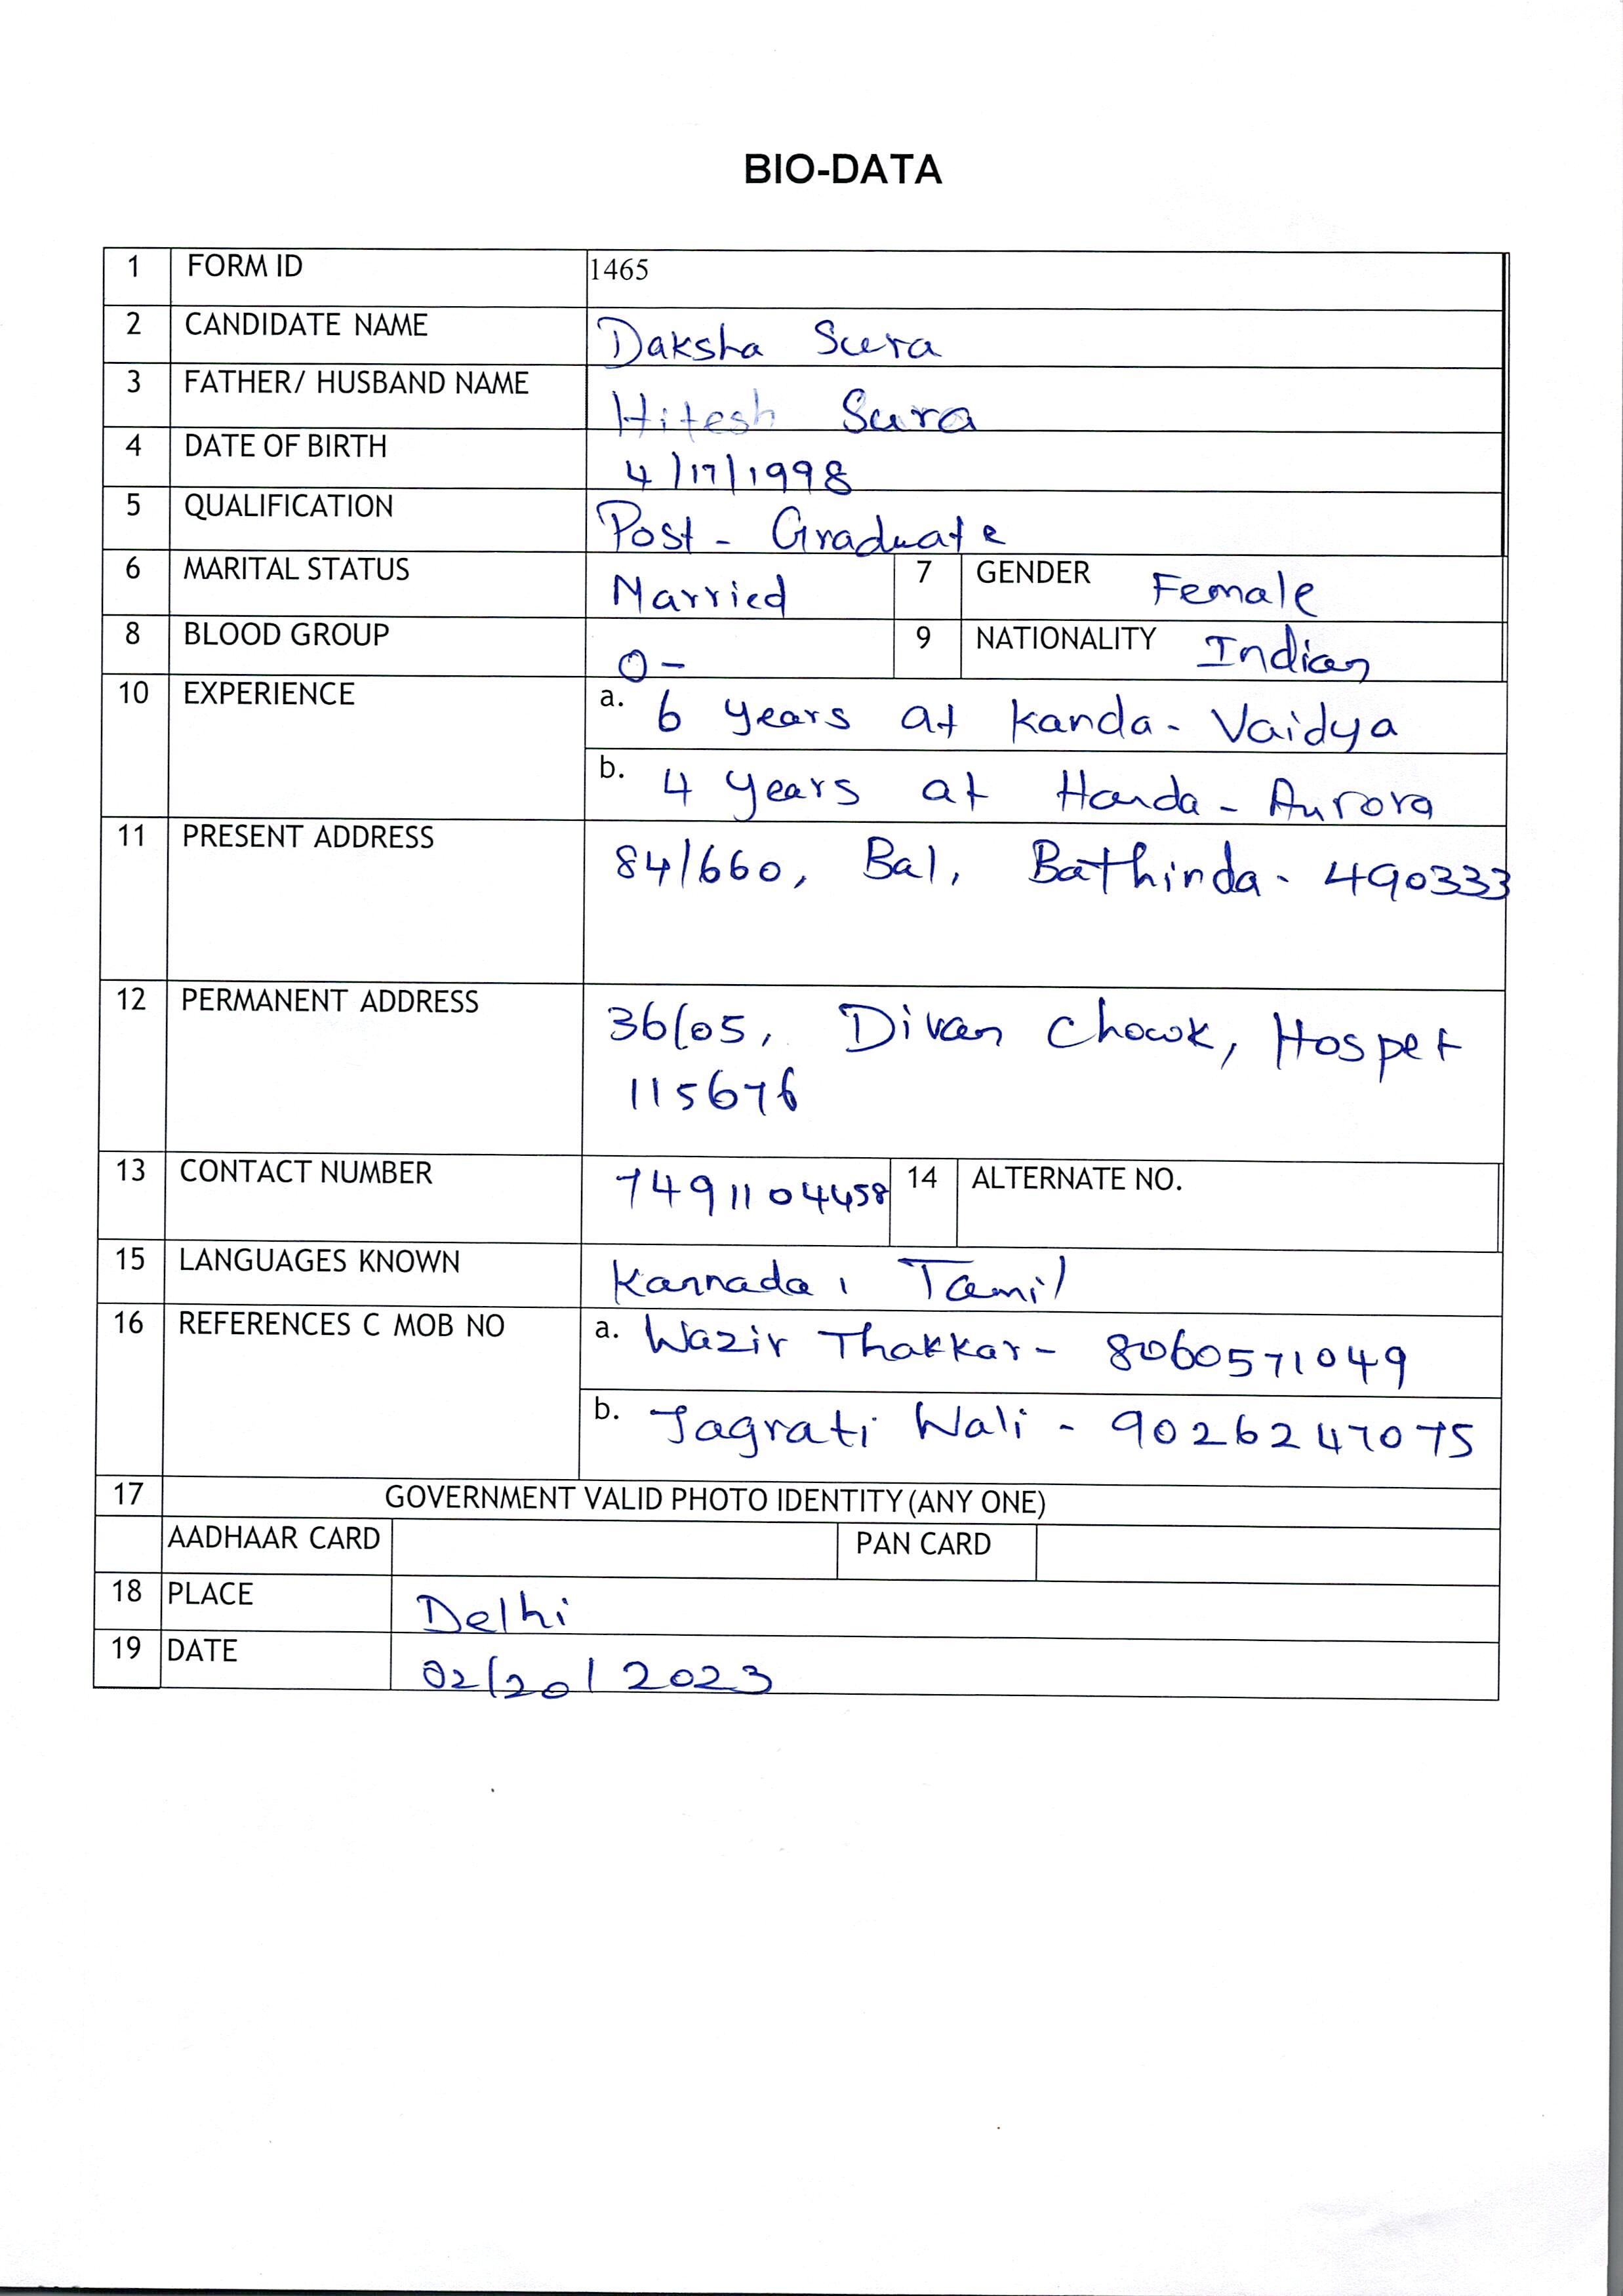 BIO-DATA
1 FORM ID 1465
2 CANDIDATE NAME Daksha Sura
3 FATHER/ HUSBAND NAME Hitesh Sura
4 DATE OF BIRTH 4/17/1998
5 QUALIFICATION Post - Graduate
6 MARITAL STATUS Married 7 GENDER Female
8 BLOOD GROUP O- 9 NATIONALITY Indian
10 EXPERIENCE a. 6 years at Kanda - Vaidya
b. 4 years at Handa - Aurora
11 PRESENT ADDRESS 84/660, Bal, Bathinda - 490333
12 PERMANENT ADDRESS 36/05, Divan Chowk, Hospet
115676
13 CONTACT NUMBER 7491104458 14 ALTERNATE NO.
15 LANGUAGES KNOWN Kannada, Tamil
16 REFERENCES C MOB NO a. Wazir Thakkar - 8060571049
b. Jagrati Wali - 9026247075
17 GOVERNMENT VALID PHOTO IDENTITY (ANY ONE)
AADHAAR CARD PAN CARD
18 PLACE Delhi
19 DATE 02/20/2023